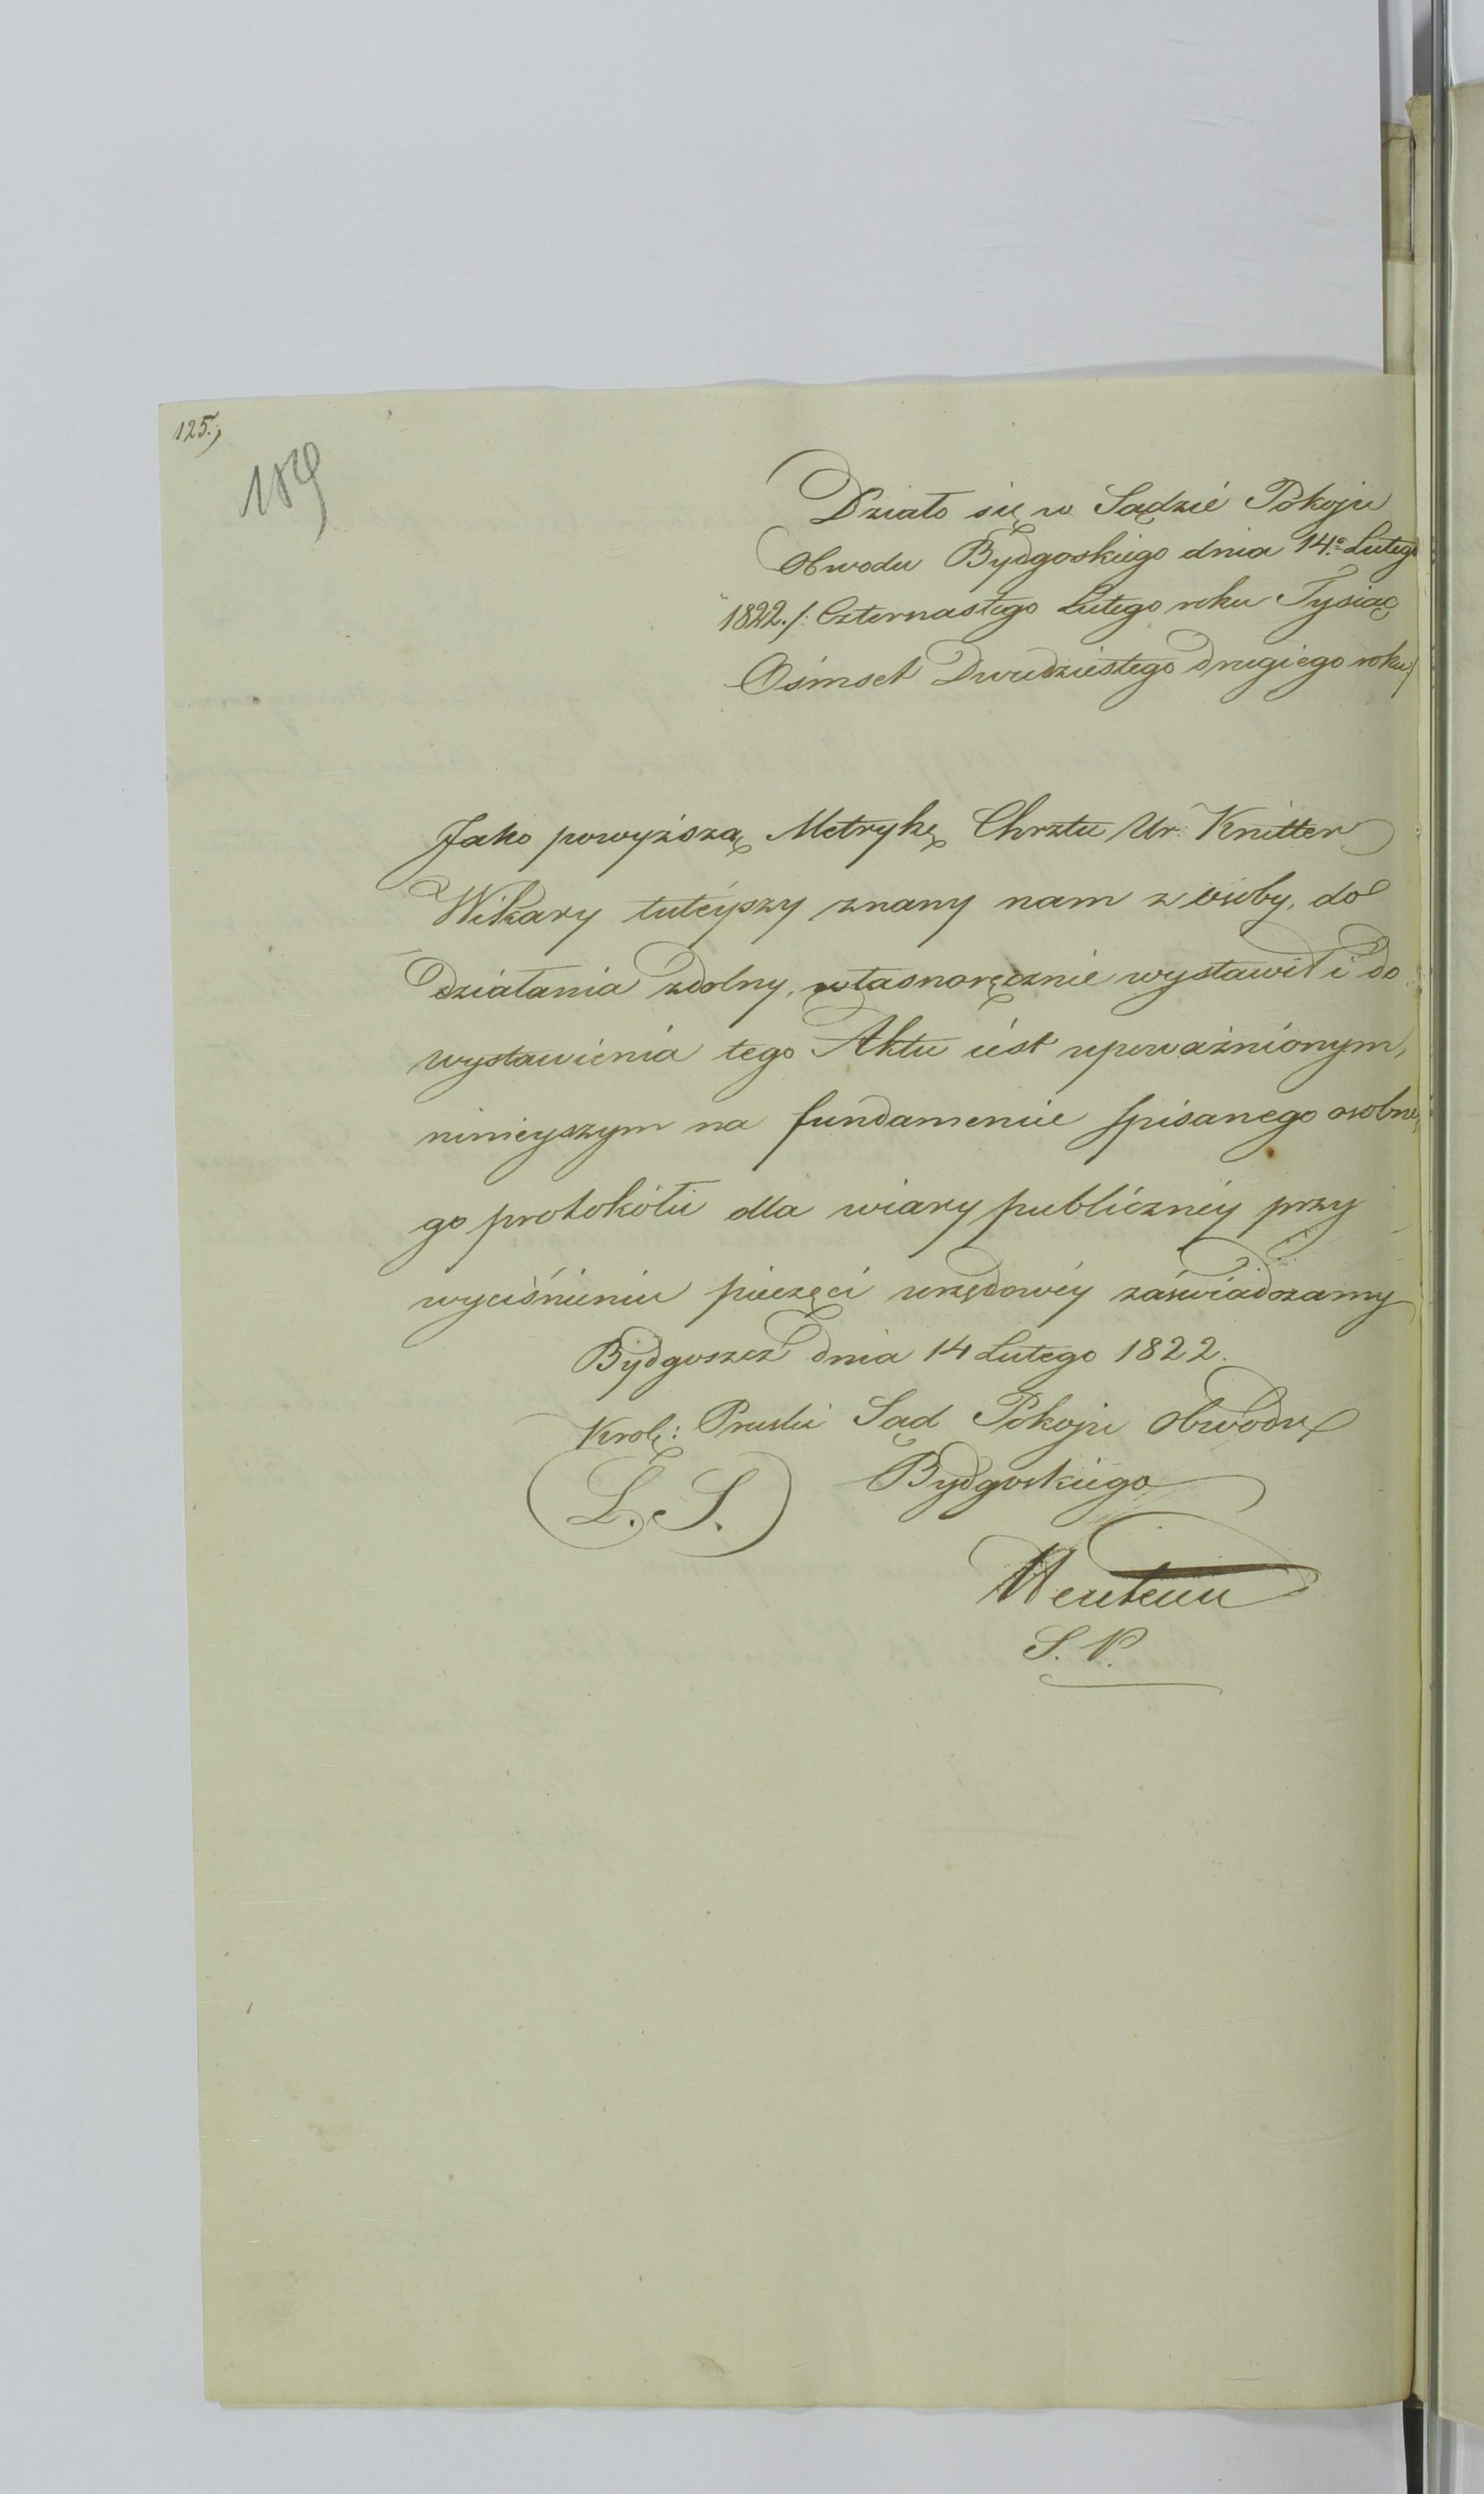 125.)
189
Działo się w Sądzié Pokoju
Obwodu Bydgoskiego dnia 14.º Lutego
1822. /: Czternastego Lutego roku Tysiąc
Ośmset Dwudziestego drugiego roku
Jako powyższą Metrykę Chrztu Ur. Knitter
Wikary tuteyszy znany nam z osoby, do
Działania zdolny, własnoręcznie wystawił i do
wystawienia tego Aktu iest upoważnionym,
ninieyszym na fundamencie spisanego osobne
go protokółu dla wiary publicznéy przy
wyciśnieniu pieczęci urzędowéy zaświadczamy
Bydgoszcz dnia 14 Lutego 1822.
Krol: Pruski Sąd Pokoju Obwodu
Bydgoskiego
L. S.
S. P.